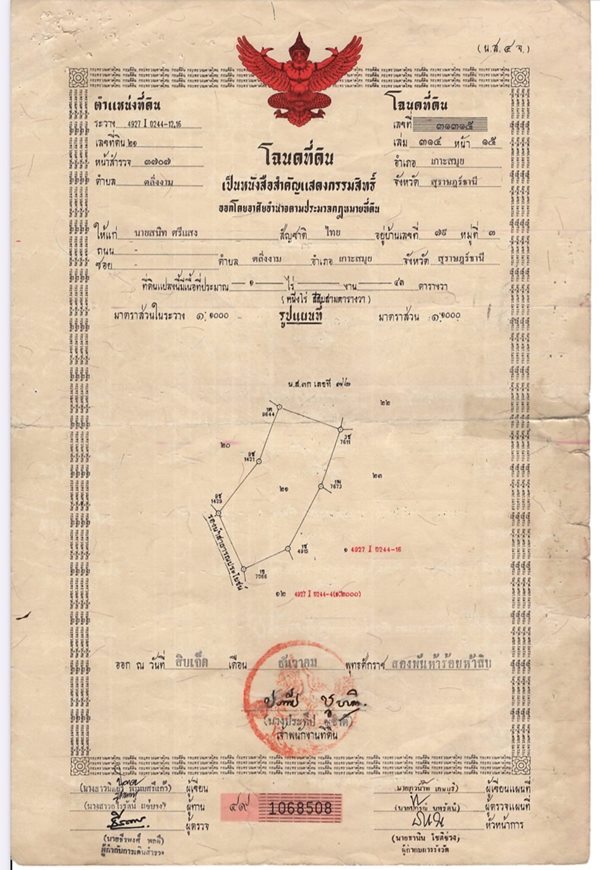 (น.ส.๔ จ.)
ตำแหน่งที่ดิน
ระวาง 4927 I 0244-12,16
เลขที่ดิน ๒๑
หน้าสำรวจ ๓๗๐๗
ตำบล ตลิ่งงาม
โฉนดที่ดิน
เลขที่ ๓๑๓๑๕
เล่ม ๓๑๔ หน้า ๑๕
อำเภอ เกาะสมุย
จังหวัด สุราษฎร์ธานี
โฉนดที่ดิน
เป็นหนังสือสำคัญแสดงกรรมสิทธิ์
ออกโดยอาศัยอำนาจตามประมวลกฎหมายที่ดิน
ให้แก่ นายสนิท ศรีแสง สัญชาติ ไทย อยู่บ้านเลขที่ ๗๙ หมู่ที่ ๓
ถนน -
ซอย - ตำบล ตลิ่งงาม อำเภอ เกาะสมุย จังหวัด สุราษฎร์ธานี
ที่ดินแปลงนี้มีเนื้อที่ประมาณ ๑ ไร่ - งาน ๔๓ ตารางวา
(หนึ่งไร่ สี่สิบสามตารางวา)
มาตราส่วนในระวาง ๑:๑๐๐๐ รูปแผนที่ มาตราส่วน ๑:๑๐๐๐
น.ส.๓ก เลขที่ ๗๒
๒๒
๒๐
๒๑
๒๓
ร่องน้ำสาธารณประโยชน์
๑ 4927 I 0244-16
๑๒ 4927 I 0244-4
ออก ณ วันที่ สิบเจ็ด เดือน ธันวาคม พุทธศักราช สองพันห้าร้อยห้าสิบ
เจ้าพนักงานที่ดิน
ผู้เขียน
ผู้ทาน
ผู้ตรวจ
๕๙ 1068508
ผู้เขียนแผนที่
ผู้ตรวจแผนที่
หัวหน้าการ